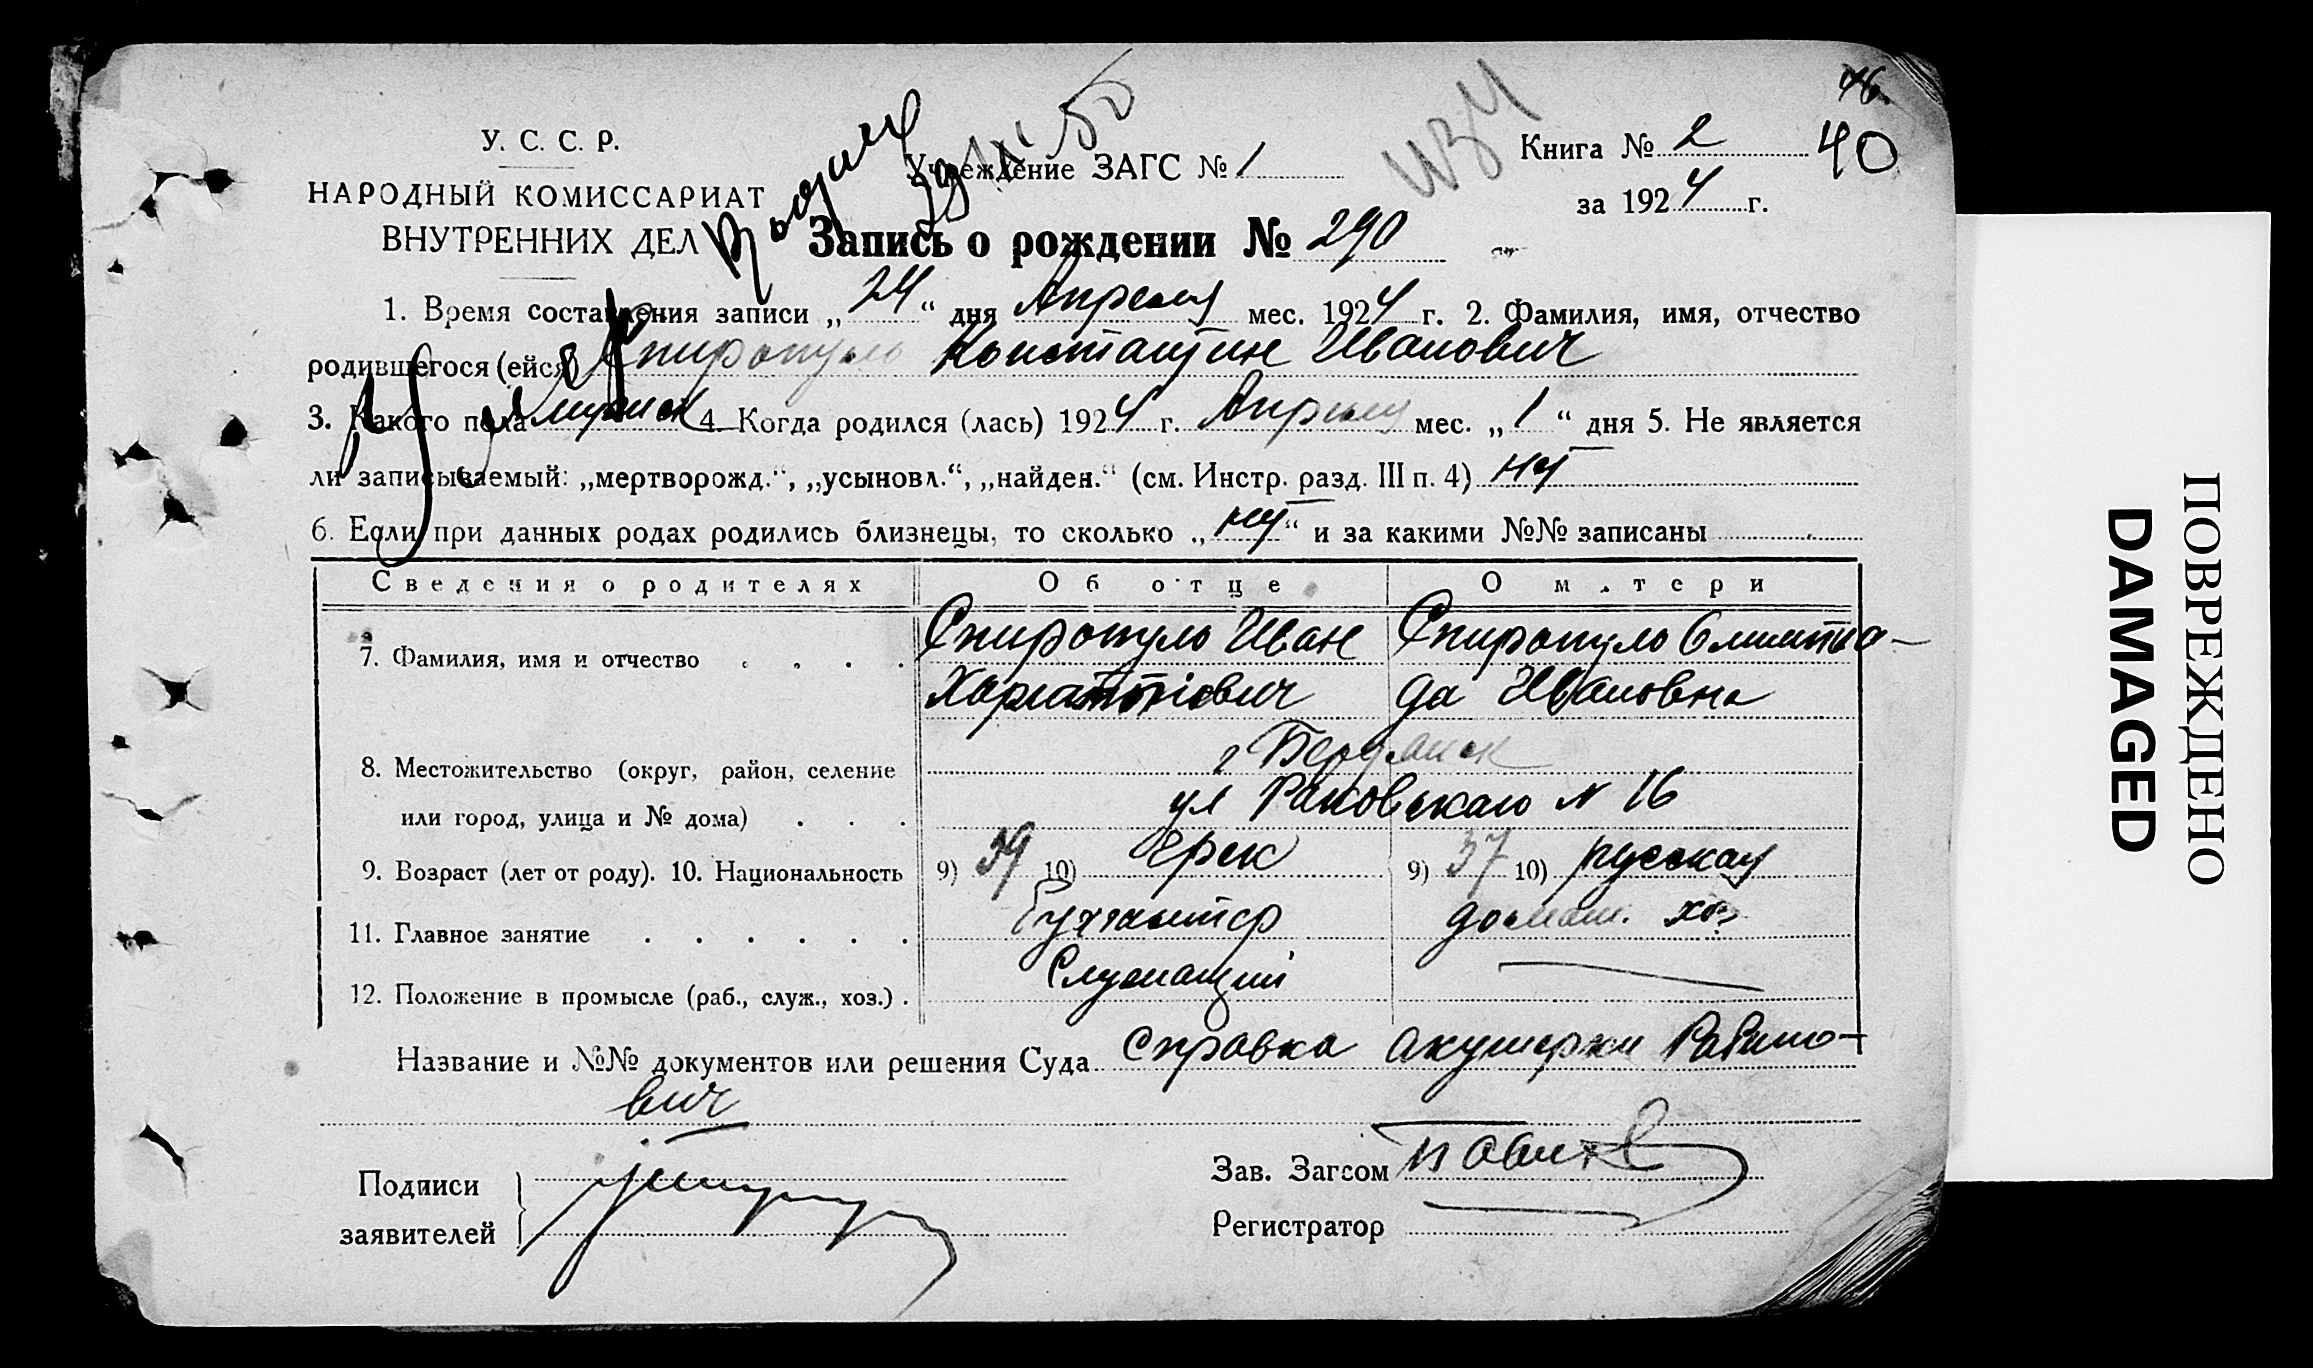 46
У. С. С. Р.
НАРОДНЫЙ КОМИССАРИАТ
ВНУТРЕННИХ ДЕЛ
Учреждение ЗАГС № 1
Книга № 2
40
за 1924 г.
Запись о рождении № 290
1. Время составления записи „24“ дня Апреля мес. 1924 г. 2. Фамилия, имя, отчество
родившегося (ейся) Спиропуло Константин Иванович
3. Какого пола мужск 4. Когда родился (лась) 1924 г. Апреля мес. „1“ дня 5. Не является
ли записываемый: „мертворожд.“, „усыновл.“, „найден.“ (см. Инстр. разд. III п. 4) нет
6. Если при данных родах родились близнецы, то сколько „нет“ и за какими №№ записаны
Сведения о родителях Об отце О матери
7. Фамилия, имя и отчество Спиропуло Иван Спиропуло Олимпиа-
Харлампиевич да Ивановна
8. Местожительство (округ, район, селение г Бердянск
или город, улица и № дома) ул Раковскаго № 16
9. Возраст (лет от роду). 10. Национальность 9) 39 10) Грек 9) 37 10) русская
11. Главное занятие бухгалтер домаш. хоз
12. Положение в промысле (раб., служ., хоз.) Служащий
Название и №№ документов или решения Суда Справка акушерки Рабино-
вич
Подписи
заявителей
Зав. Загсом
Регистратор
ПОВРЕЖДЕНО
DAMAGED